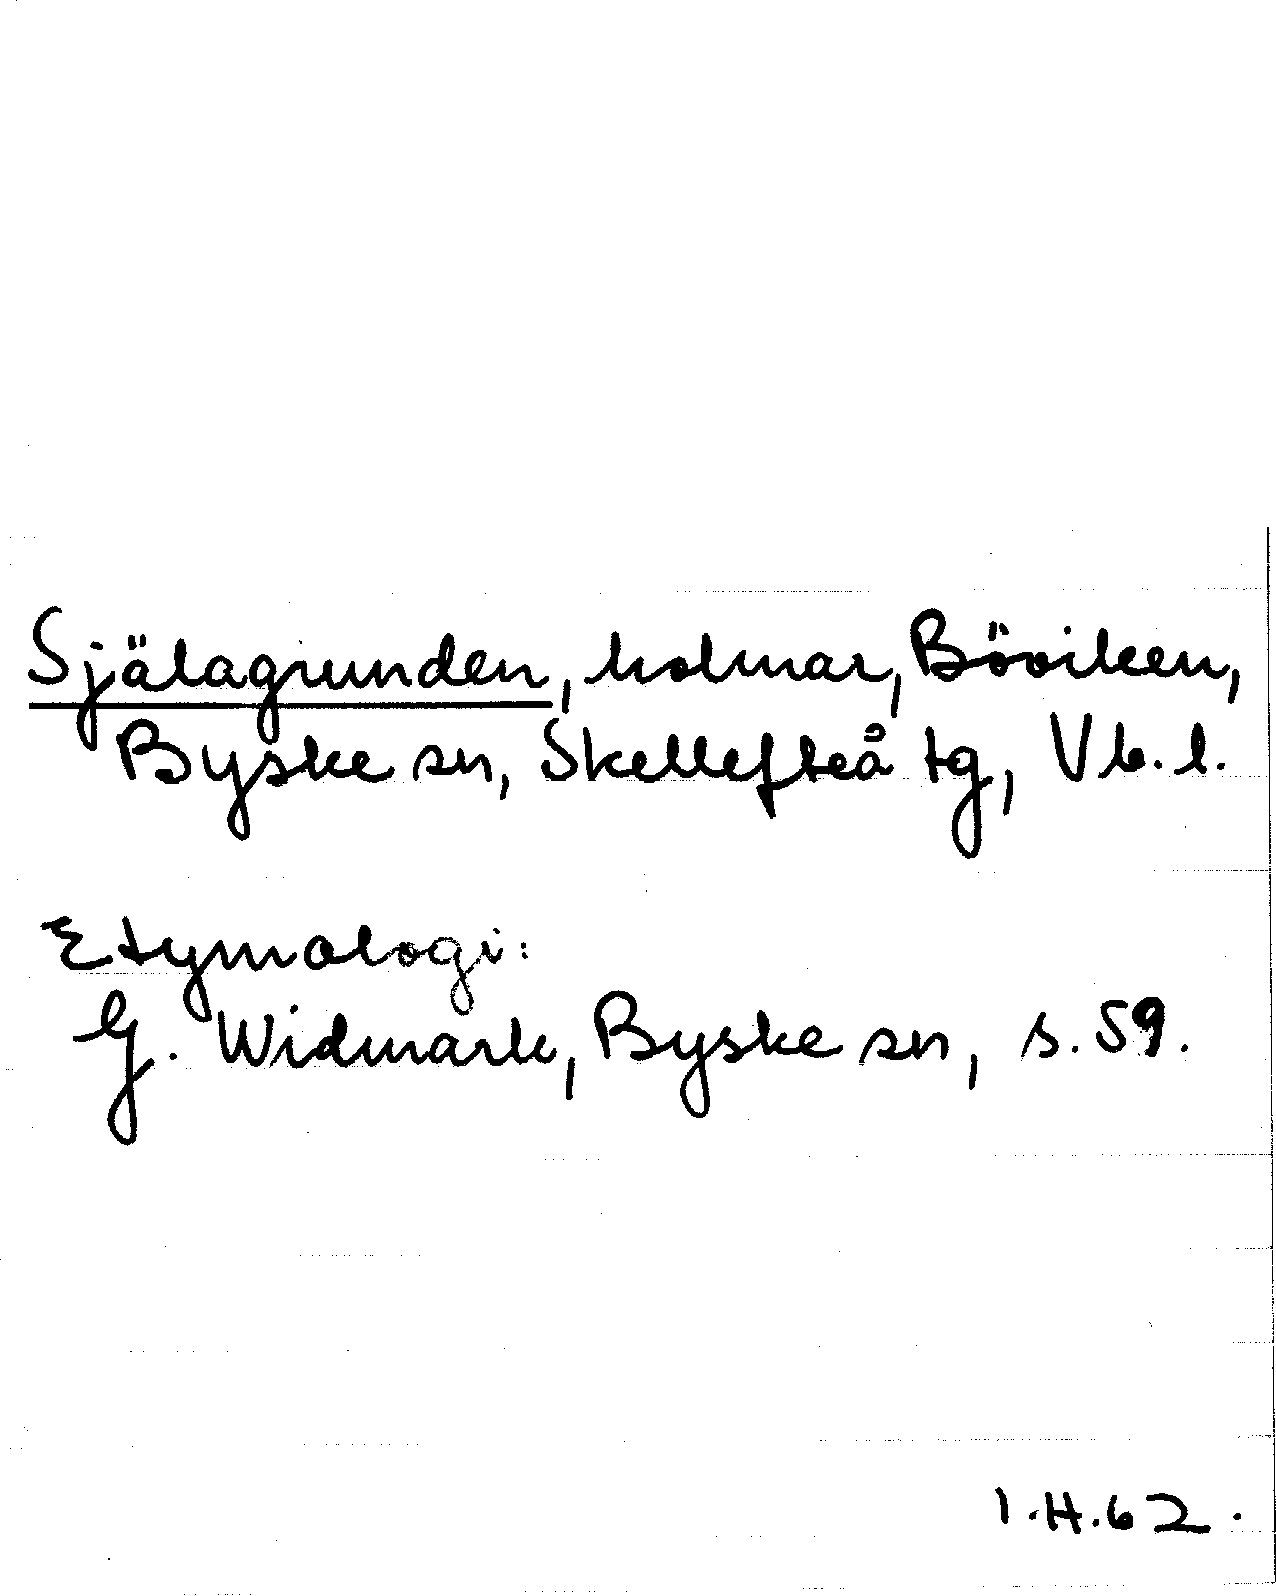 Själagrunden, holmar, Böviken,
Byske sn, Skellefteå tg, Vb. l.
Etymologi:
G. Widmark, Byske sn, s. 59.
I.H.62.